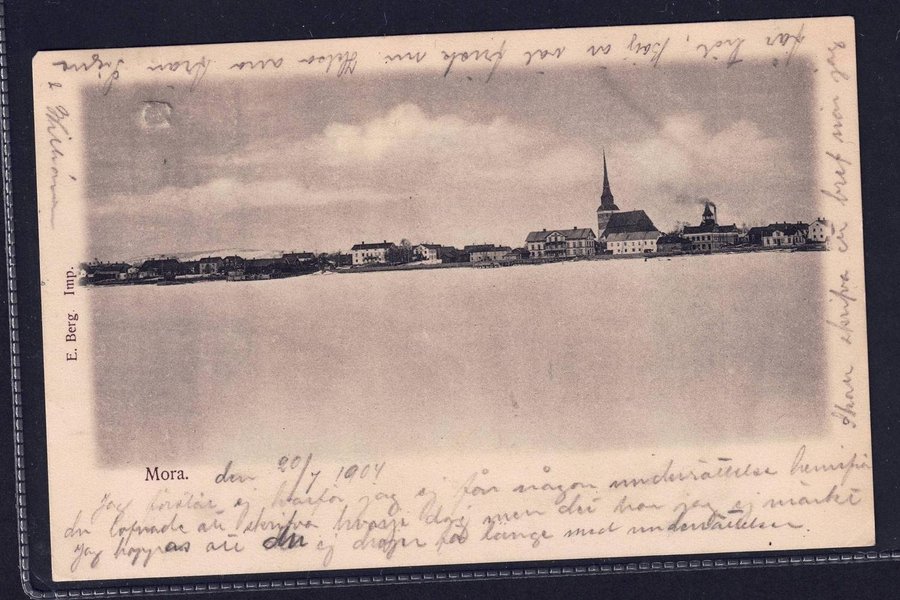 Mora. den 20/7 1904
Jag förstår ej hvarför jag ej får någon underrättelse hemifrån
du lofvade att skrifva hvarje dag men det har jag ej märkt
Jag hoppas att du ej dröjer för länge med underrättelser.
Skall skrifva ett bref när jag
får tid, jag är väl frisk nu. Helsa alla från Signe
E. Berg. Imp.